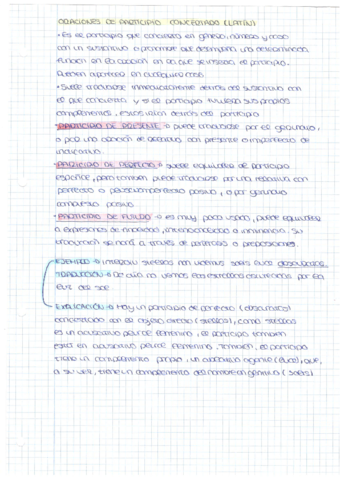 ORACIONES DE PARTICIPIO CONCERTADO (LATÍN)
• Es el participio que concuerda en género, número y caso
con un sustantivo o pronombre que desempeña una determinada
función en la oración en la que se inserta el participio.
Pueden aparecer en cualquier caso.
• Suele traducirse inmediatamente detrás del sustantivo con
el que concuerta y si el participio tuviera sus propios
complementos, estos irían detrás del participio
• PARTICIPIO DE PRESENTE → puede traducirse por el gerundio,
o por una oración de relativo con presente o imperfecto de
indicativo.
• PARTICIPIO DE PERFECTO → suele equivaler de participio
español, pero también puede traducirse por una relativa con
perfecto o pluscuamperfecto pasivo, o por gerundio
compuesto pasivo.
• PARTICIPIO DE FUTURO → es muy poco usado, puede equivaler
a expresiones de finalidad, intencionalidad o inminencia. Su
traducción se hará a través de perífrasis o preposiciones.
EJEMPLO → Interdiu stellas non videmus solis luce obscuratas.
TRADUCCIÓN → De día no vemos las estrellas oscurecidas por la
luz del sol.
EXPLICACIÓN → Hay un participio de perfecto (obscuratas)
concertado con el objeto directo (stellas), como stellas
es un acusativo plural femenino, el participio también
está en acusativo plural femenino. También, el participio
tiene un complemento propio, un ablativo agente (luce), que,
a su vez, tiene un complemento del nombre en genitivo (solis)